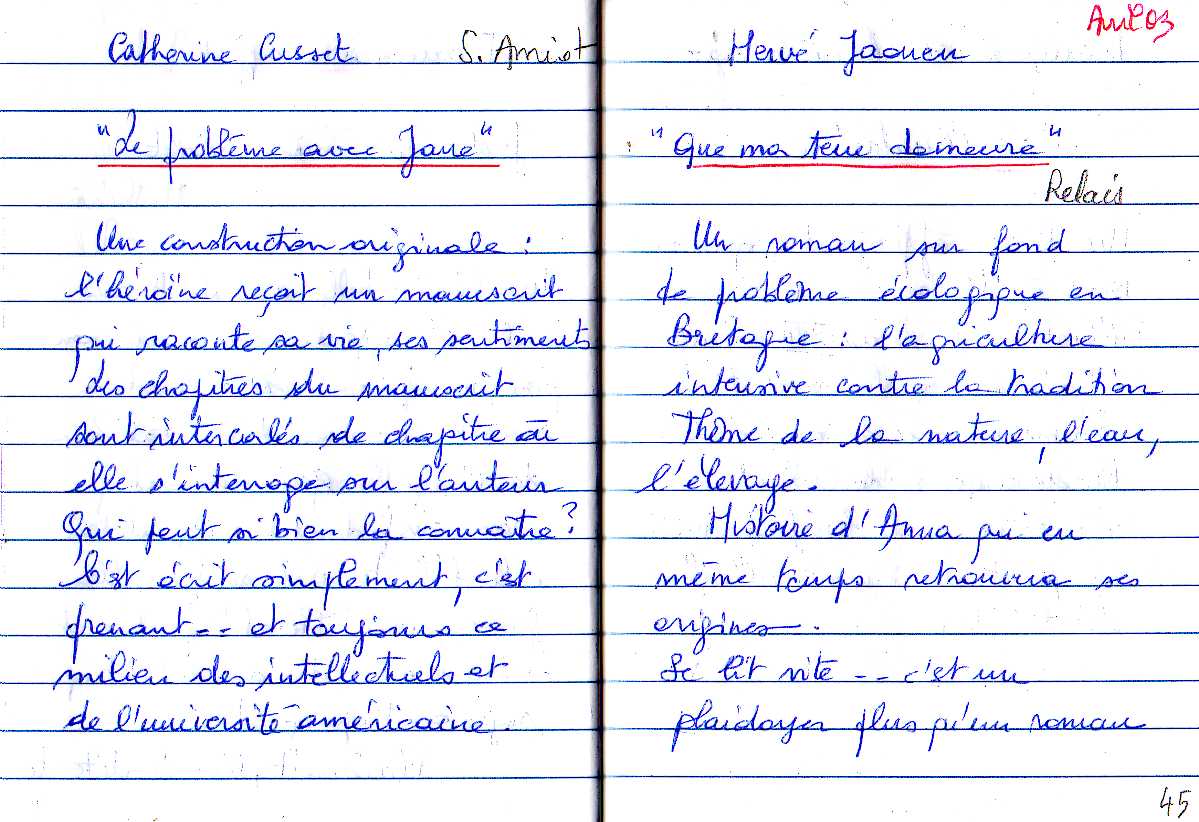 Catherine Cusset S. Amiot
"Le problème avec Jane"
Une construction originale :
l'héroïne reçoit un manuscrit
qui raconte sa vie, ses sentiments
des chapitres du manuscrit
sont intercalés de chapitre où
elle s'interroge sur l'auteur
Qui peut si bien la connaître ?
C'est écrit simplement, c'est
prenant -- et toujours ce
milieu des intellectuels et
de l'université américaine.
Avril 03
Hervé Jaouen
"Que ma terre demeure"
Relais
Un roman sur fond
de problème écologique en
Bretagne : l'agriculture
intensive contre la tradition
Thème de la nature, l'eau,
l'élevage.
Histoire d'Anna qui en
même temps retrouvera ses
origines.
Se lit vite -- c'est un
plaidoyer plus qu'un roman
45